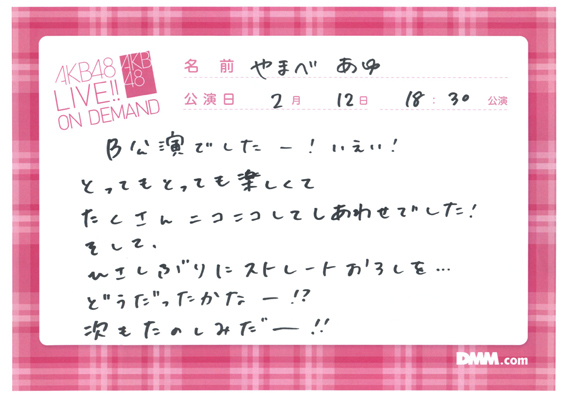 AKB48
LIVE!!
ON DEMAND
AKB
48
名前 やまべ あゆ
公演日 2月 12日 18:30 公演
B公演でしたー!いえい!
とってもとっても楽しくて
たくさんニコニコしてしあわせでした!
そして、
ひさしぶりにストレートおろしを…
どうだったかなー!?
次もたのしみだー!!
DMM.com